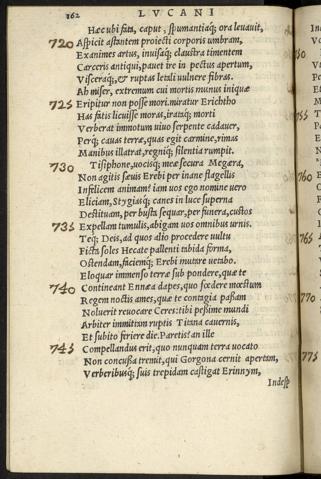 162 LVCANI
Hæc ubi fata, caput, spumantiaq́; ora leuauit,
720 Aspicit astantem proiecti corporis umbram,
Exanimes artus, inuisaq́; claustra timentem
Carceris antiqui, pauet ire in pectus apertum,
Visceraq́;, & ruptas letali uulnere fibras.
Ah miser, extremum cui mortis munus iniquæ
725 Eripitur non posse mori. miratur Erichtho
Has fatis licuisse moras, irataq́; morti
Verberat immotum uiuo serpente cadauer,
Perq́; cauas terræ, quas egit carmine, rimas
Manibus illatrat, regniq́; silentia rumpit.
730 Tisiphone, uocisq́; meæ secura Megæra,
Non agitis sæuis Erebi per inane flagellis
Infelicem animam? iam uos ego nomine uero
Eliciam, Stygiasq́; canes in luce superna
Destituam, per busta sequar, per funera, custos
735 Expellam tumulis, abigam uos omnibus urnis.
Teq́; Deis, ad quos alio procedere uultu
Ficta soles Hecate pallenti tabida forma,
Ostendam, faciemq́; Erebi mutare uetabo.
Eloquar immenso terræ sub pondere, quæ te
740 Contineant Ennæa dapes, quo fœdere mœstum
Regem noctis ames, quæ te contagia passam
Noluerit reuocare Ceres: tibi pessime mundi
Arbiter immittam ruptis Titana cauernis,
Et subito feriere die. Paretis? an ille
745 Compellandus erit, quo nunquam terra uocato
Non concussa tremit, qui Gorgona cernit apertam,
Verberibusq́; suis trepidam castigat Erinnym,
Indesp
750
760
765
770
775